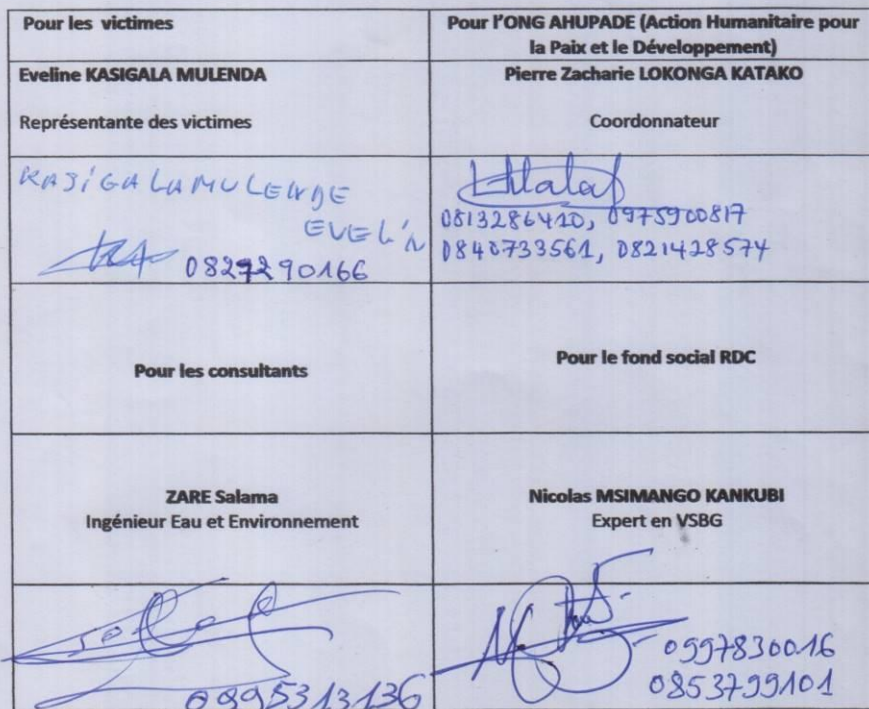 Pour les victimes
Pour l'ONG AHUPADE (Action Humanitaire pour
la Paix et le Développement)
Eveline KASIGALA MULENDA
Représentante des victimes
Pierre Zacharie LOKONGA KATAKO
Coordonnateur
KASIGALAMULENDE
EVELIN
0827290166
0813286410, 0975900817
0840733561, 0821428574
Pour les consultants
Pour le fond social RDC
ZARE Salama
Ingénieur Eau et Environnement
Nicolas MSIMANGO KANKUBI
Expert en VSBG
0995313136
0997830016
0853799101